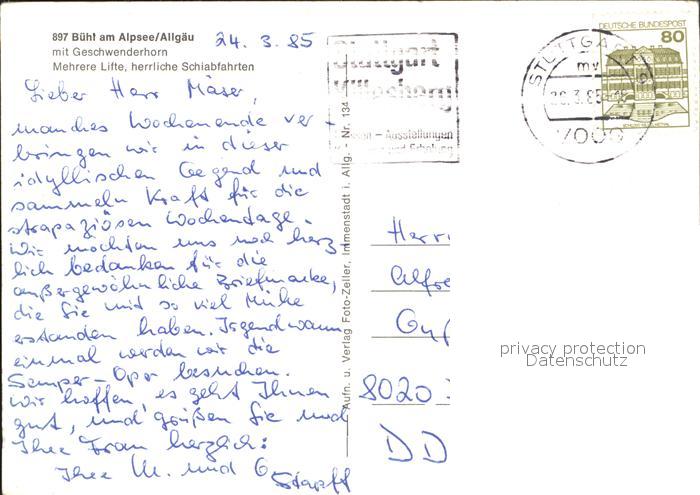 897 Bühl am Alpsee/Allgäu
mit Geschwenderhorn
Mehrere Lifte, herrliche Schiabfahrten
24. 3. 85
Lieber Herr Mäser,
manches Wochenende ver-
bringen wir in dieser
idyllischen Gegend und
sammeln Kraft für die
strapaziösen Wochentage.
Wir möchten uns noch herz
lich bedanken für die
außergewöhnliche Briefmarke,
die Sie mit so viel Mühe
erstanden haben. Irgendwann
einmal werden wir die
Semper-Oper besuchen.
Wir hoffen, es geht Ihnen
gut, und grüßen Sie und
Ihre Frau herzlich:
Ihre M. und G. Stapff
Aufn. u. Verlag Foto-Zeller, Immenstadt i. Allg. - Nr. 134
Stuttgart
Killesberg
Ausstellungen
und Erholung
STUTTGA
mv
7000
DEUTSCHE BUNDESPOST
80
Herr
Alfre
8020
DD
privacy protection
Datenschutz